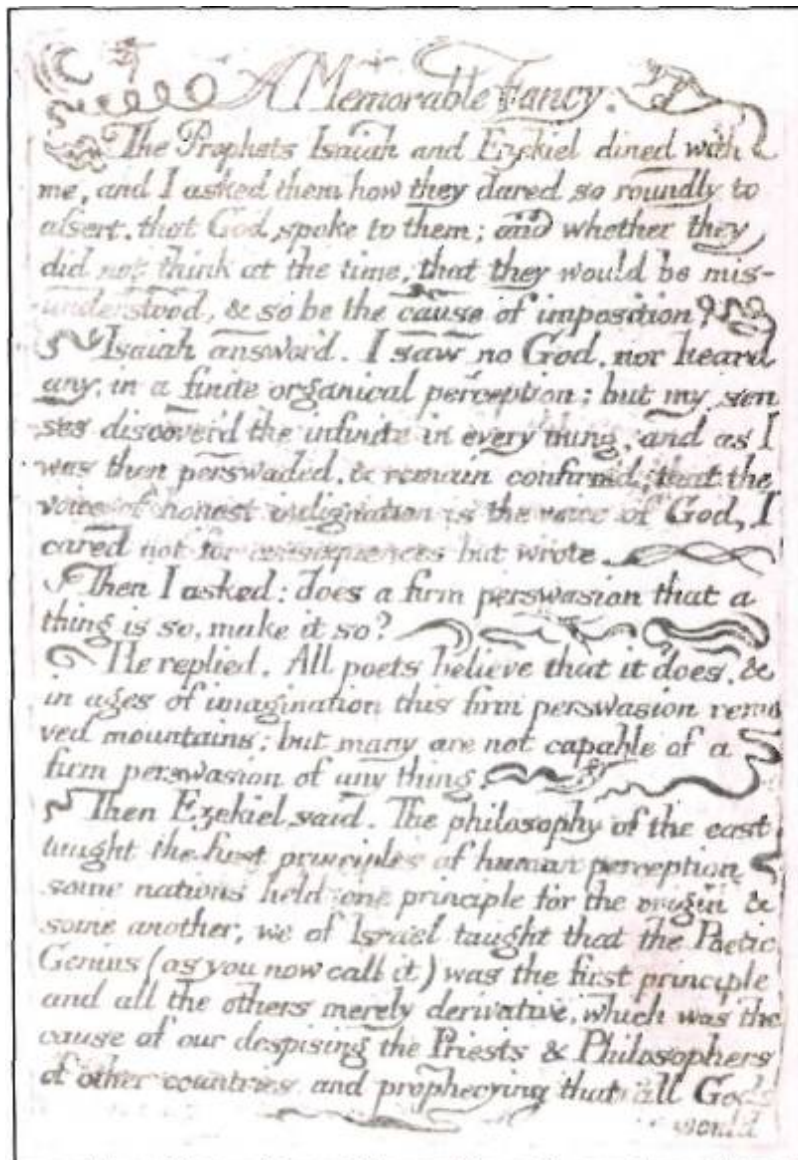 A Memorable Fancy.
The Prophets Isaiah and Ezekiel dined with
me, and I asked them how they dared so roundly to
assert. that God spoke to them; and whether they
did not think at the time, that they would be mis-
understood, & so be the cause of imposition?
Isaiah answerd. I saw no God. nor heard
any, in a finite organical perception; but my sen
ses discover'd the infinite in every thing, and as I
was then perswaded. & remain confirmd; that the
voice of honest indignation is the voice of God, I
cared not for consequences but wrote.
Then I asked: does a firm perswasion that a
thing is so, make it so?
He replied. All poets believe that it does, &
in ages of imagination this firm perswasion remo
ved mountains; but many are not capable of a
firm perswasion of any thing.
Then Ezekiel said. The philosophy of the east
taught the first principles of human perception
some nations held one principle for the origin &
some another, we of Israel taught that the Poetic
Genius (as you now call it) was the first principle
and all the others merely derivative, which was the
cause of our despising the Priests & Philosophers
of other countries, and prophecying that all Gods
would